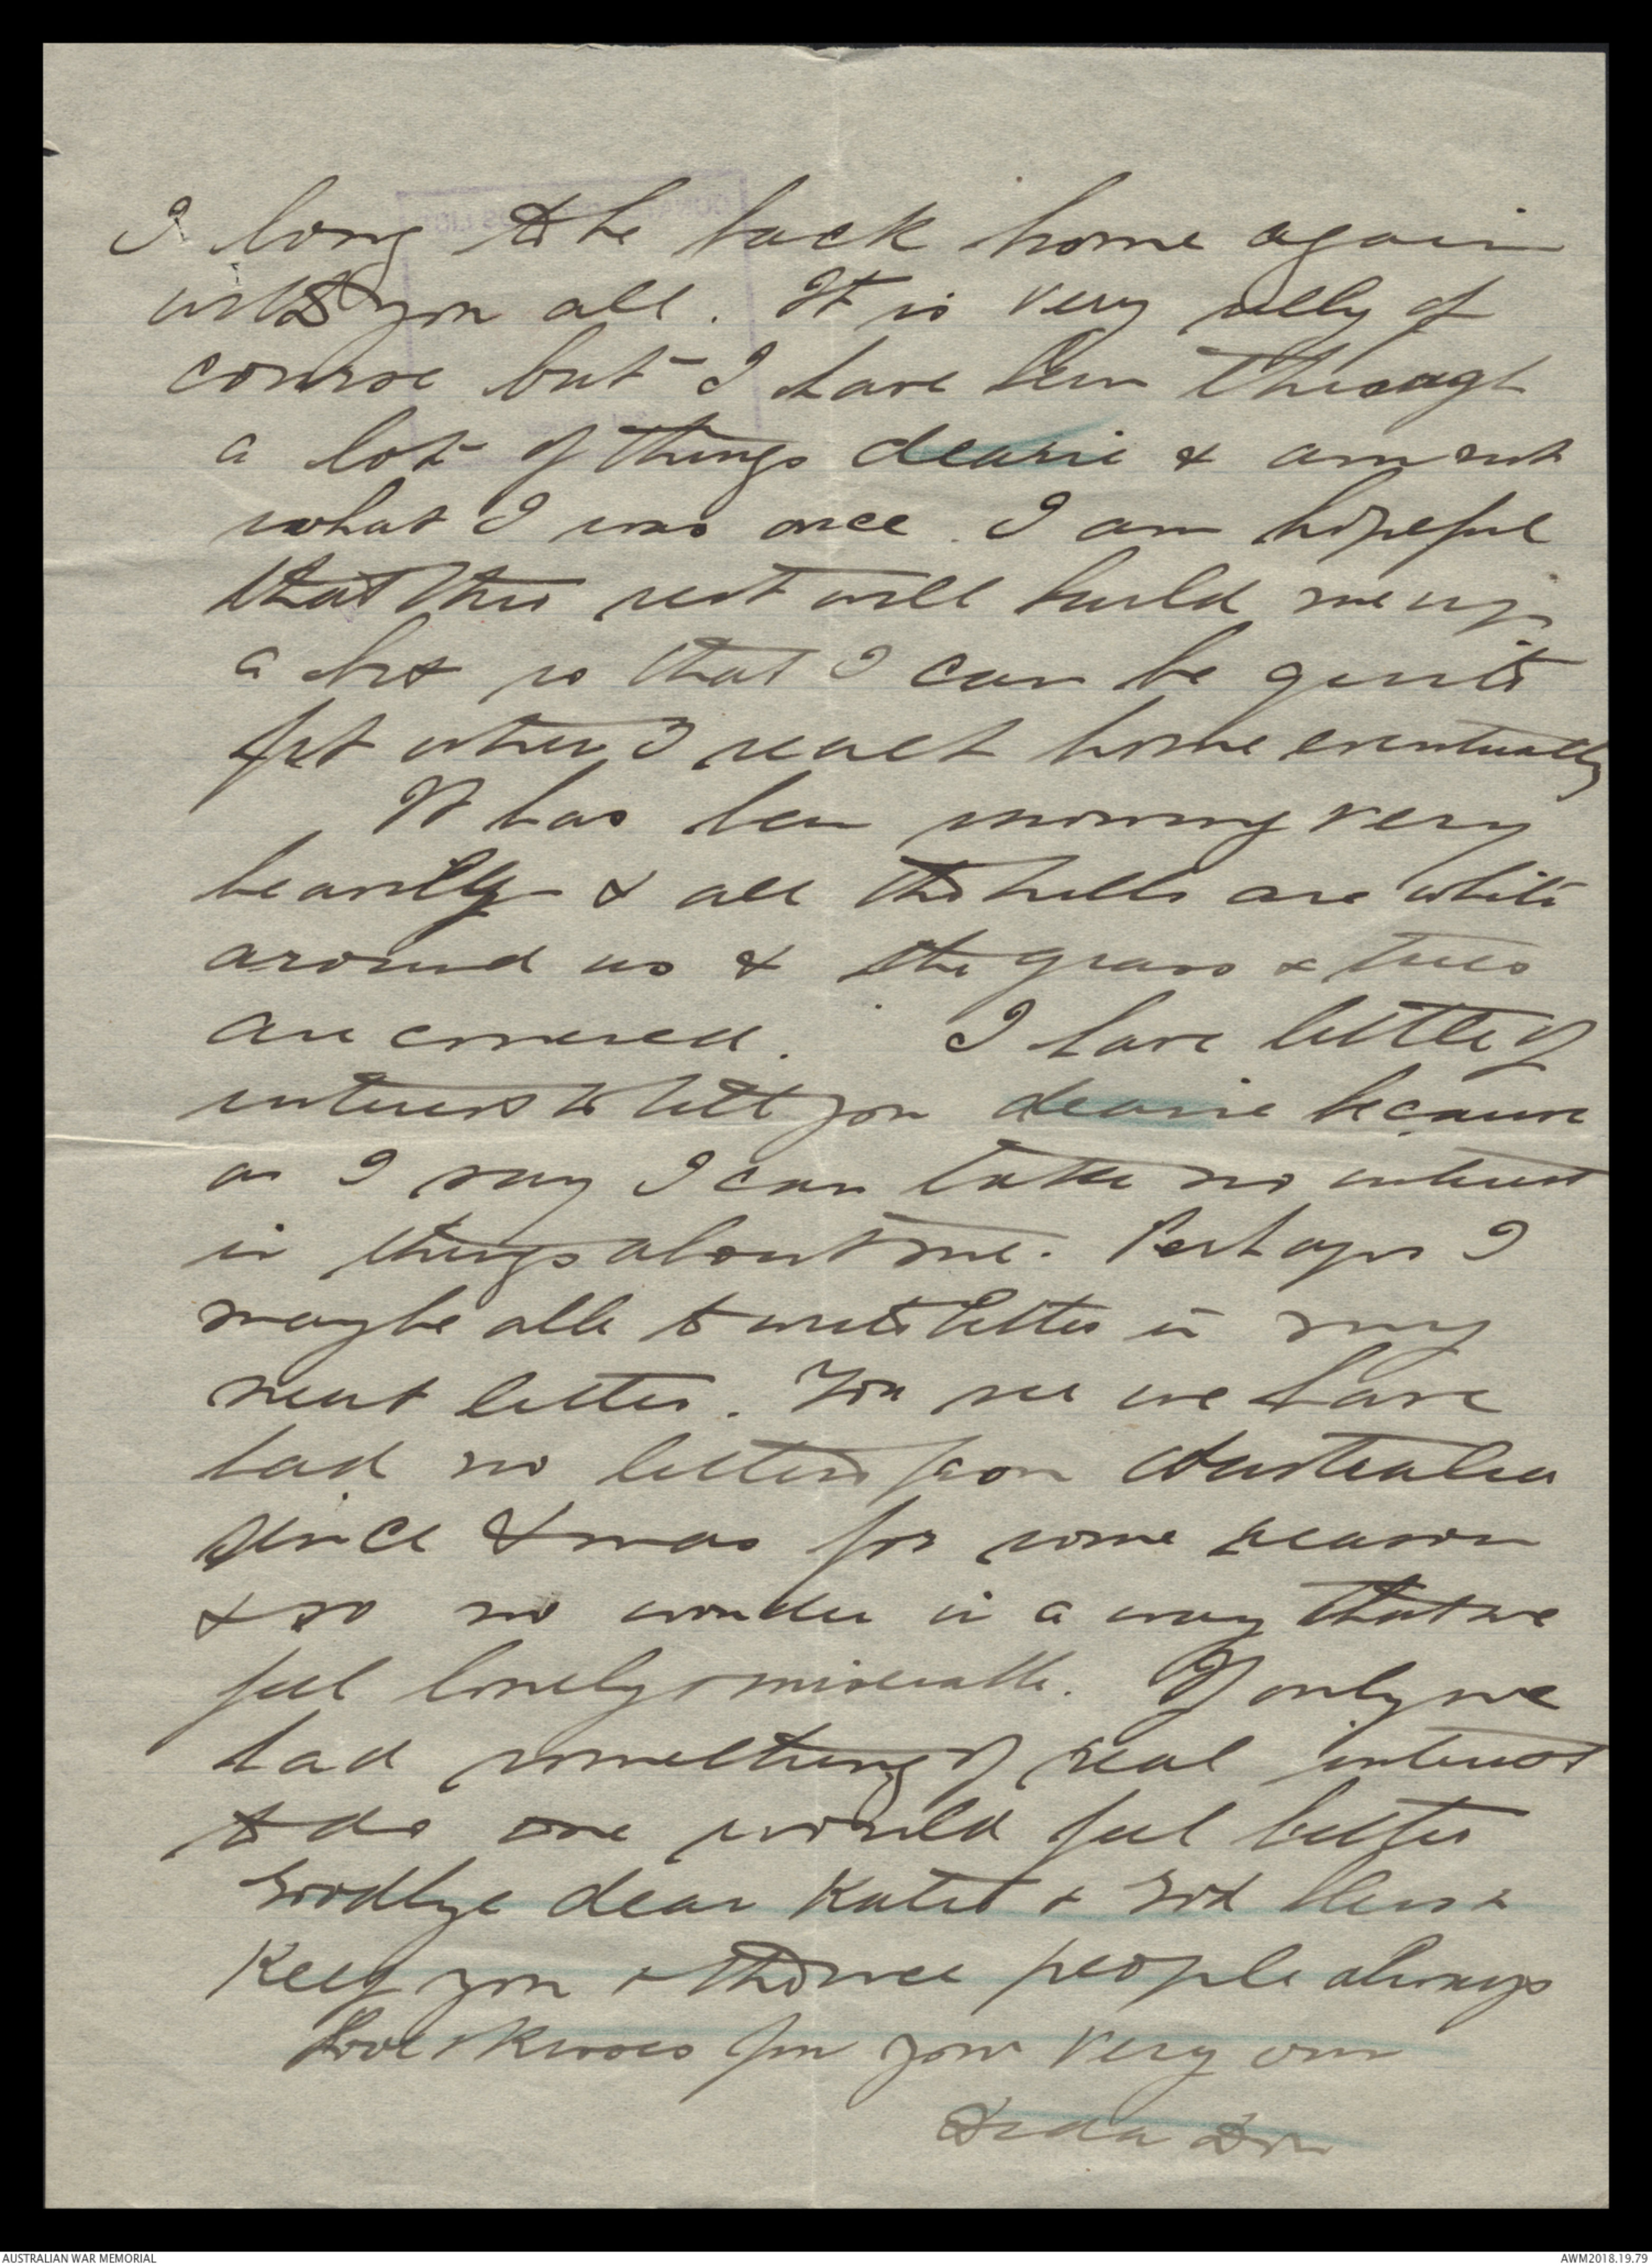 I long to be back home again
with you all. It is very silly of
course but I have been through
a lot of things dearie & am not
what I was once. I am hopeful
that this rest will build me up
a bit so that I can be quite
fit when I reach home eventually
It has been snowing very
heavily & all the hills are white
around us & the grass & trees
are covered. I have little of
interest to tell you dearie because
as I say I can take no interest
in things about me. Perhaps I
maybe able to write better in my
next letter. You see we have
had no letters from Australia
since Xmas for some reason
& so no wonder in a way that we
feel lonely & miserable. If only we
had something of real interest
to do one would feel better
Goodbye dear Katie & God bless &
Keep you & those people always
Love & Kisses from your very own
AUSTRALIAN WAR MEMORIAL
AWM2018.19.79